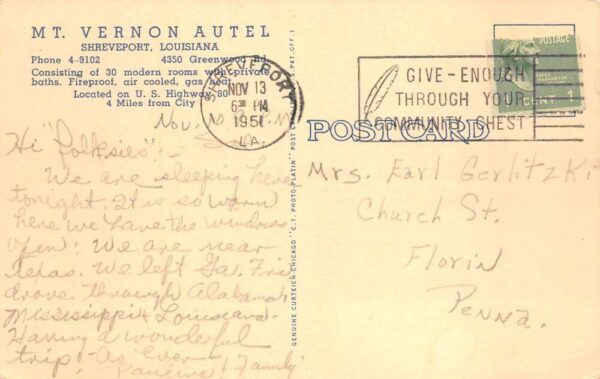 MT. VERNON AUTEL
SHREVEPORT, LOUISIANA
Phone 4-9102 4350 Greenwood Rd.
Consisting of 30 modern rooms with private
baths. Fireproof, air cooled, gas heat.
Located on U. S. Highway 80
4 Miles from City
SHREVEPORT
NOV 13
PM
1951
LA.
GIVE-ENOUGH
THROUGH YOUR
COMMUNITY CHEST
POSTAGE
CENT 1
POST CARD
GENUINE CURTEICH-CHICAGO "C.T. PHOTO-PLATIN" POST CARD (REG. U.S. PAT. OFF.)
Nov.
Hi "folksies" -
We are sleeping here
tonight. It is so warm
here we have the windows
open! We are near
Texas. We left Ga. Fri
drove through Alabama
Mississippi & Louisiana.
Having a wonderful
trip. As Ever
Pauline & Family
Mrs. Earl Gerlitzki
Church St.
Florin
Penna.